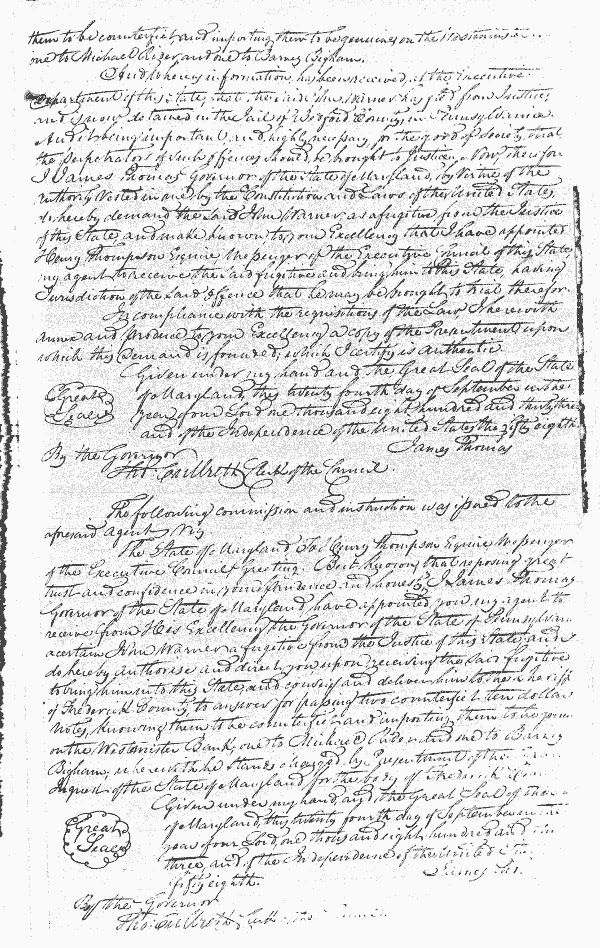 them to be counterfeit, and importing them to be genuine on the Westminster
one to Michael Rizer, and one to Barney Bigham.
And whereas information has been received, at the Executive
Department of this State, that the said John Warner has fled from Justice,
and is now detained in the Jail of Bedford County, in Pennsylvania.
And it being important and highly necessary for the good of Society, that
the perpetrators of such offences should be brought to Justice. Now, therefore
I James Thomas Governor of the State of Maryland, by virtue of the
authority vested in me, by the Constitution and Laws of the United States,
do hereby demand the said John Warner, as a fugitive from the Justice
of this State, and make known to your Excellency that I have appointed
Henry Thompson Esquire Messenger of the Executive Council of this State
my agent to receive the said fugitive and bring him to this State, having
Jurisdiction of the said Offence that he may be brought to trial therefor.
In compliance with the requisitions of the Law, I herewith
annex and produce to your Excellency a copy of the Presentment upon
which this Demand is founded, which I certify is authentic.
Given under my hand and the Great Seal of the State
of Maryland, this twenty fourth day of September in the
year of our Lord one thousand eight hundred and thirty three
and of the Independence of the United States the fifty eighth.
Great
Seal
James Thomas
By the Governor
Tho: Culbreth Clerk of the Council.
The following commission and instruction was issued to the
aforesaid agent Viz
The State of Maryland, To Henry Thompson Esquire Messenger
of the Executive Council Greeting. Be it known, that reposing great
trust and confidence in your prudence and honesty, I James Thomas
Governor of the State of Maryland, have appointed you my agent to
receive from His Excellency the Governor of the State of Pennsylvania
a certain John Warner a fugitive from the Justice of this State, and I
do hereby authorise and direct you upon receiving the said fugitive
to bring him into this State, and convey and deliver him to the Sheriff
of Frederick County, to answer for passing two counterfeit ten dollar
notes, knowing them to be counterfeit and importing them to be genuine
on the Westminster Bank, one to Michael Rizer and one to Barney
Bigham, wherewith he stands charged by Presentment of the
Inquest of the State of Maryland, for the body of Frederick
Given under my hand, and the Great Seal of the
of Maryland, this twenty fourth day of September in
year of our Lord, one thousand eight hundred and
three, and of the Independence of the United
fifty eighth.
Great
Seal
James
By the Governor
Tho: Culbreth Clerk of the Council